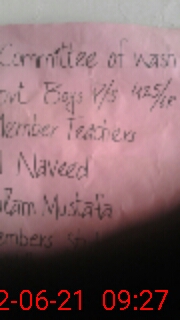 Committee of wash
Boys P/S 425/
Member Teachers
Naveed
Mustafa
embers
2-06-21 09:27